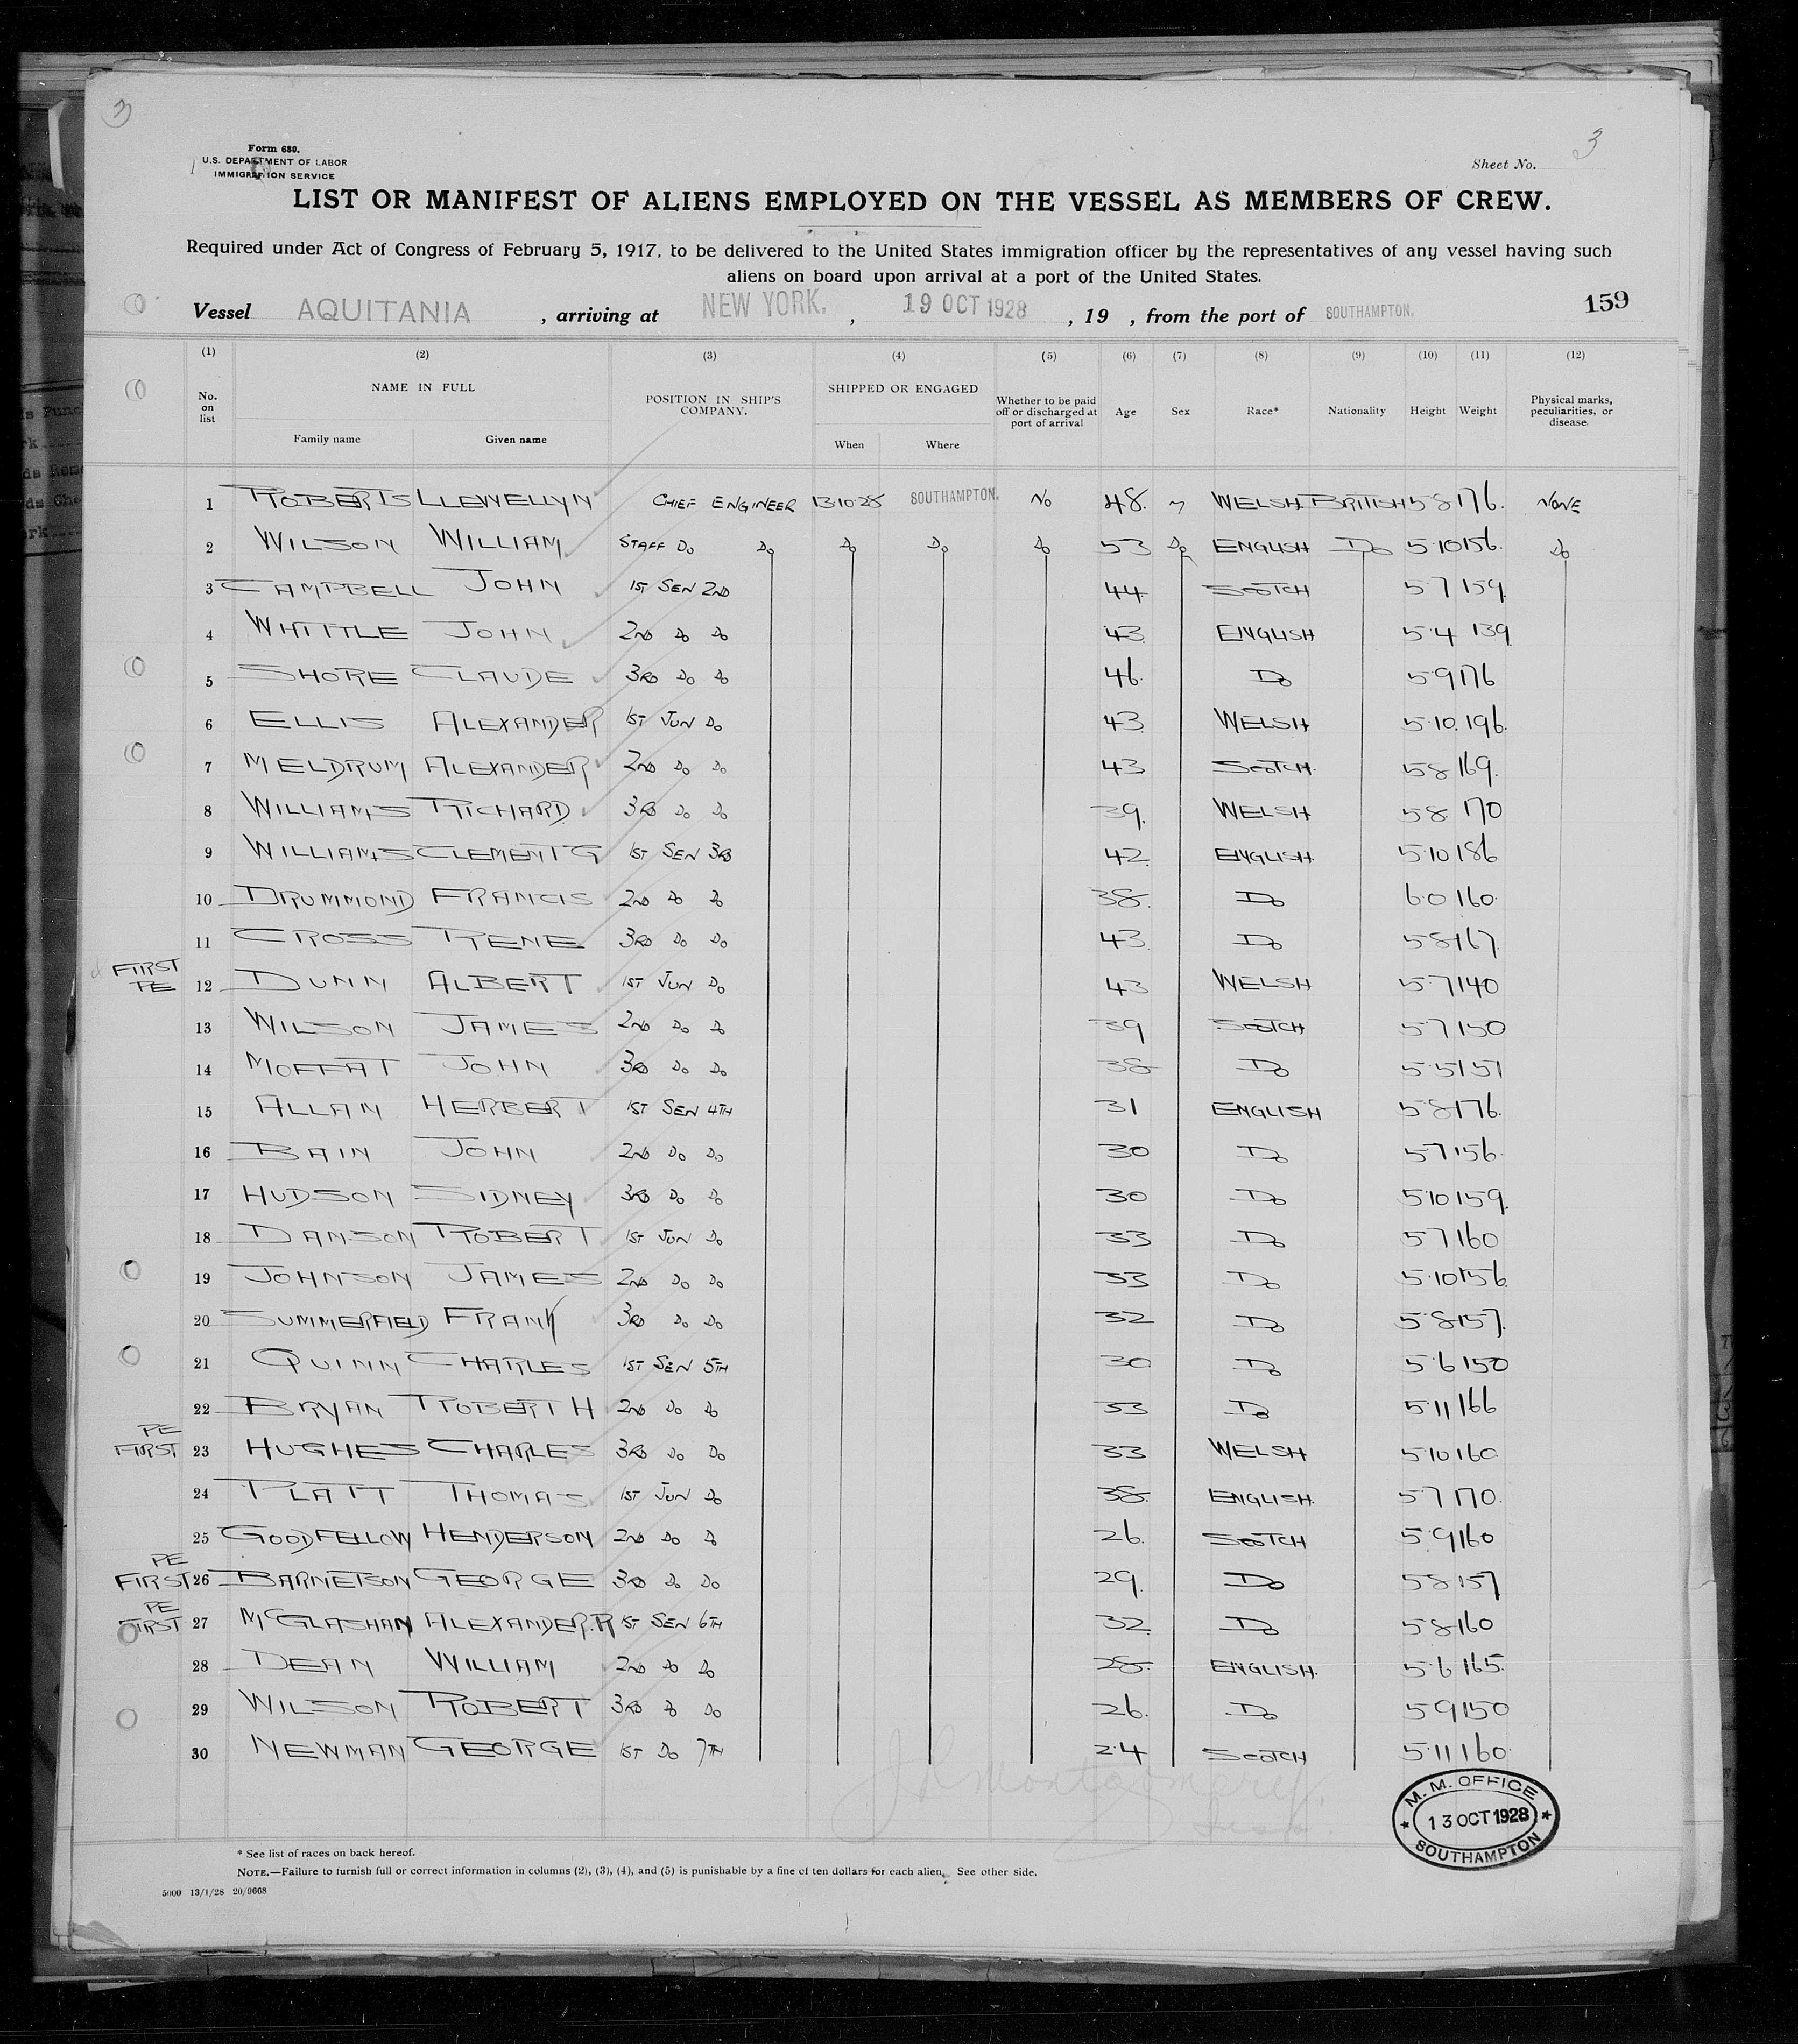 3
3
Form 680.
U.S. DEPARTMENT OF LABOR
IMMIGRATION SERVICE
Sheet No.
LIST OR MANIFEST OF ALIENS EMPLOYED ON THE VESSEL AS MEMBERS OF CREW.
Required under Act of Congress of February 5, 1917, to be delivered to the United States immigration officer by the representatives of any vessel having such
aliens on board upon arrival at a port of the United States.
Vessel AQUITANIA, arriving at NEW YORK., 19 OCT 1928, 19 , from the port of SOUTHAMPTON. 159
(1) (2) (3) (4) (5) (6) (7) (8) (9) (10) (11) (12)
No. on list NAME IN FULL Family name Given name POSITION IN SHIP'S COMPANY. SHIPPED OR ENGAGED When Where Whether to be paid off or discharged at port of arrival Age Sex Race* Nationality Height Weight Physical marks, peculiarities, or disease.
1 ROBERTS LLEWELLYN CHIEF ENGINEER 13·10·28 SOUTHAMPTON. No 48. M WELSH BRITISH 5·8 176. NONE
2 WILSON WILLIAM STAFF Do Do Do Do Do 53 Do ENGLISH Do 5·10 156. Do
3 CAMPBELL JOHN 1ST SEN 2ND 44 SCOTCH 5·7 159
4 WHITTLE JOHN 2ND Do Do 43 ENGLISH 5·4 139
5 SHORE CLAUDE 3RD Do Do 46. Do 5·9 176
6 ELLIS ALEXANDER 1ST JUN Do 43 WELSH 5·10. 196.
7 MELDRUM ALEXANDER 2ND Do Do 43 SCOTCH. 5·8 169.
8 WILLIAMS RICHARD 3RD Do Do 39. WELSH 5·8 170
9 WILLIAMS CLEMENT G 1ST SEN 3RD 42. ENGLISH. 5·10 186
10 DRUMMOND FRANCIS 2ND Do Do 38. Do 6·0 160.
11 CROSS RENE 3RD Do Do 43. Do 5·8 167.
FIRST PE 12 DUNN ALBERT 1ST JUN Do 43 WELSH 5·7 140
13 WILSON JAMES 2ND Do Do 39 SCOTCH 5·7 150
14 MOFFAT JOHN 3RD Do Do 38 Do 5·5 151
15 ALLAN HERBERT 1ST SEN 4TH 31 ENGLISH 5·8 176.
16 BAIN JOHN 2ND Do Do 30 Do 5·7 156.
17 HUDSON SIDNEY 3RD Do Do 30 Do 5·10 159.
18 DANSON ROBERT 1ST JUN Do 33 Do 5·7 160
19 JOHNSON JAMES 2ND Do Do 33 Do 5·10 156.
20 SUMMERFIELD FRANK 3RD Do Do 32 Do 5·8 157.
21 QUINN CHARLES 1ST SEN 5TH 30 Do 5·6 150
22 BRYAN ROBERT H 2ND Do Do 33 Do 5·11 166
PE FIRST 23 HUGHES CHARLES 3RD Do Do 33 WELSH 5·10 160
24 PLATT THOMAS. 1ST JUN Do 38. ENGLISH. 5·7 170.
25 GOODFELLOW HENDERSON 2ND Do Do 26. SCOTCH 5·9 160
PE FIRST 26 BARNETSON GEORGE 3RD Do Do 29. Do 5·8 157
PE FIRST 27 McGLASHAN ALEXANDER.R 1ST SEN 6TH 32. Do 5·8 160
28 DEAN WILLIAM 2ND Do Do 28. ENGLISH. 5·6 165.
29 WILSON ROBERT 3RD Do Do 26. Do 5·9 150
30 NEWMAN GEORGE 1ST Do 7TH 24 SCOTCH 5·11 160.
M. M. OFFICE
★ 13 OCT 1928 ★
SOUTHAMPTON
* See list of races on back hereof.
NOTE.—Failure to furnish full or correct information in columns (2), (3), (4), and (5) is punishable by a fine of ten dollars for each alien. See other side.
5000 13/1/28 20/9668